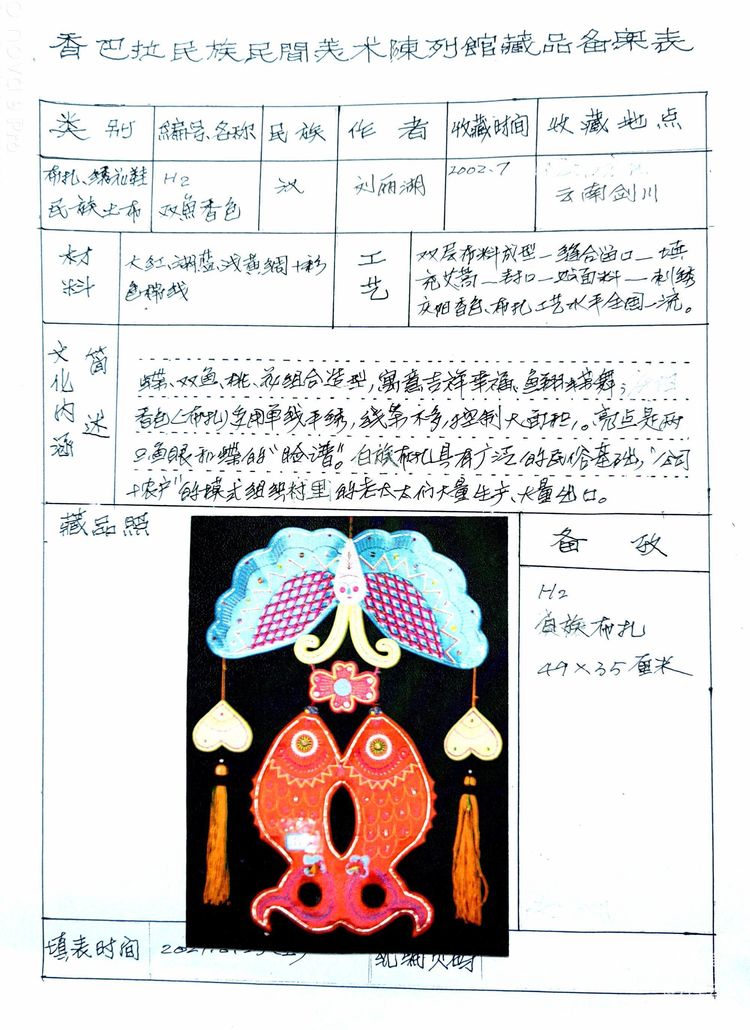 香巴拉民族民間美术陳列館藏品备案表
类别 编号、名称 民族 作者 收藏时间 收藏地点
布扎、绣花鞋
民族土布
H2
双魚香包
汉
刘丽湖
2002.7
云南剑川
材料
大红、湖蓝、浅黄绸十彩
色棉线
工艺
双层布料成型—缝合留口—填
充艾蒿—封口—贴面料—刺绣
庆阳香包、布扎工艺水平全国一流。
文化内涵
简述
蝶、双鱼、桃、花组合造型,寓意吉祥幸福、
香包(布扎)运用单线平绣,线条不多,控制大面积。亮点是两
只鱼眼和蝶的"脸谱"。白族布扎具有广泛的民俗基础,"公司
+农户"的模式组织村里的老太太们大量生产、大量出口。
藏品照
备考
H2
族布扎
49×35厘米
填表时间